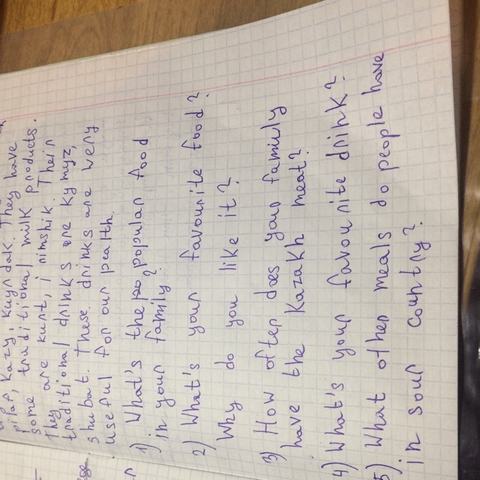 pilaf, kazy, kuyrdak. They have
some traditional milk products.
They are kurt, irimshik. Their
traditional drinks are kymyz,
shubat. These drinks are very
useful for our health.
1) What's the popular food
in your family?
2) What's your favourite food?
Why do you like it?
3) How often does your family
have the Kazakh meat?
4) What's your favourite drink?
5) What other meals do people have
in your country?